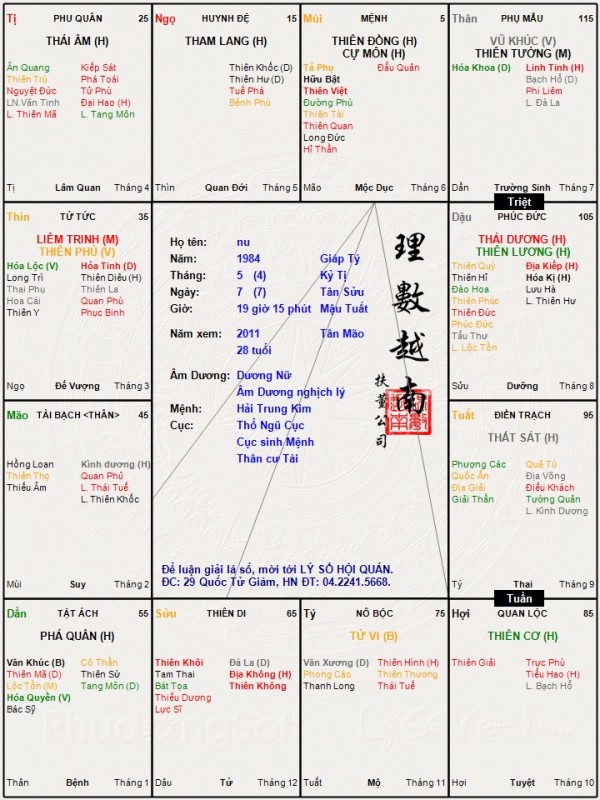 Tị PHU QUÂN 25
THÁI ÂM (H)
Ân Quang Kiếp Sát
Thiên Trù Phá Toái
Nguyệt Đức Tử Phù
LN.Văn Tinh Đại Hao (H)
L. Thiên Mã L. Tang Môn
Tị Lâm Quan Tháng 4
Ngọ HUYNH ĐỆ 15
THAM LANG (H)
Thiên Khốc (D)
Thiên Hư (D)
Tuế Phá
Bệnh Phù
Thìn Quan Đới Tháng 5
Mùi MỆNH 5
THIÊN ĐỒNG (H)
CỰ MÔN (H)
Tả Phụ Đẩu Quân
Hữu Bật
Thiên Việt
Đường Phù
Thiên Tài
Thiên Quan
Long Đức
Hỉ Thần
Mão Mộc Dục Tháng 6
Thân PHỤ MẪU 115
VŨ KHÚC (V)
THIÊN TƯỚNG (M)
Hóa Khoa (D) Linh Tinh (H)
Bạch Hổ (D)
Phi Liêm
L. Đà La
Dần Trường Sinh Tháng 7
Triệt
Thìn TỬ TỨC 35
LIÊM TRINH (M)
THIÊN PHỦ (V)
Hóa Lộc (V) Hỏa Tinh (D)
Long Trì Thiên Diêu (H)
Thai Phụ Thiên La
Hoa Cái Quan Phù
Thiên Y Phục Binh
Ngọ Đế Vượng Tháng 3
Họ tên: nu
Năm: 1984 Giáp Tý
Tháng: 5 (4) Kỷ Tị
Ngày: 7 (7) Tân Sửu
Giờ: 19 giờ 15 phút Mậu Tuất
Năm xem: 2011 Tân Mão
28 tuổi
Âm Dương: Dương Nữ
Âm Dương nghịch lý
Mệnh: Hải Trung Kim
Cục: Thổ Ngũ Cục
Cục sinh Mệnh
Thân cư Tài
理數越南
扶董公司
Để luận giải lá số, mời tới LÝ SỐ HỘI QUÁN.
ĐC: 29 Quốc Tử Giám, HN ĐT: 04.2241.5668.
Dậu PHÚC ĐỨC 105
THÁI DƯƠNG (H)
THIÊN LƯƠNG (H)
Thiên Quý Địa Kiếp (H)
Thiên Hỉ Hóa Kị (H)
Đào Hoa Lưu Hà
Thiên Phúc L. Thiên Hư
Thiên Đức
Phúc Đức
Tấu Thư
L. Lộc Tồn
Sửu Dưỡng Tháng 8
Mão TÀI BẠCH <THÂN> 45
Hồng Loan Kình dương (H)
Thiên Thọ Quan Phủ
Thiếu Âm L. Thái Tuế
L. Thiên Khốc
Mùi Suy Tháng 2
Tuất ĐIỀN TRẠCH 95
THẤT SÁT (H)
Phượng Các Quả Tú
Quốc Ấn Địa Võng
Địa Giải Điếu Khách
Giải Thần Tướng Quân
L. Kình Dương
Tý Thai Tháng 9
Tuần
Dần TẬT ÁCH 55
PHÁ QUÂN (H)
Văn Khúc (B) Cô Thần
Thiên Mã (D) Thiên Sứ
Lộc Tồn (M) Tang Môn (D)
Hóa Quyền (V)
Bác Sỹ
Thân Bệnh Tháng 1
Sửu THIÊN DI 65
Thiên Khôi Đà La (D)
Tam Thai Địa Không (H)
Bát Tọa Thiên Không
Thiếu Dương
Lực Sĩ
Dậu Tử Tháng 12
Tý NÔ BỘC 75
TỬ VI (B)
Văn Xương (D) Thiên Hình (H)
Phong Cáo Thiên Thương
Thanh Long Thái Tuế
Tuất Mộ Tháng 11
Hợi QUAN LỘC 85
THIÊN CƠ (H)
Thiên Giải Trực Phù
Tiểu Hao (H)
L. Bạch Hổ
Hợi Tuyệt Tháng 10